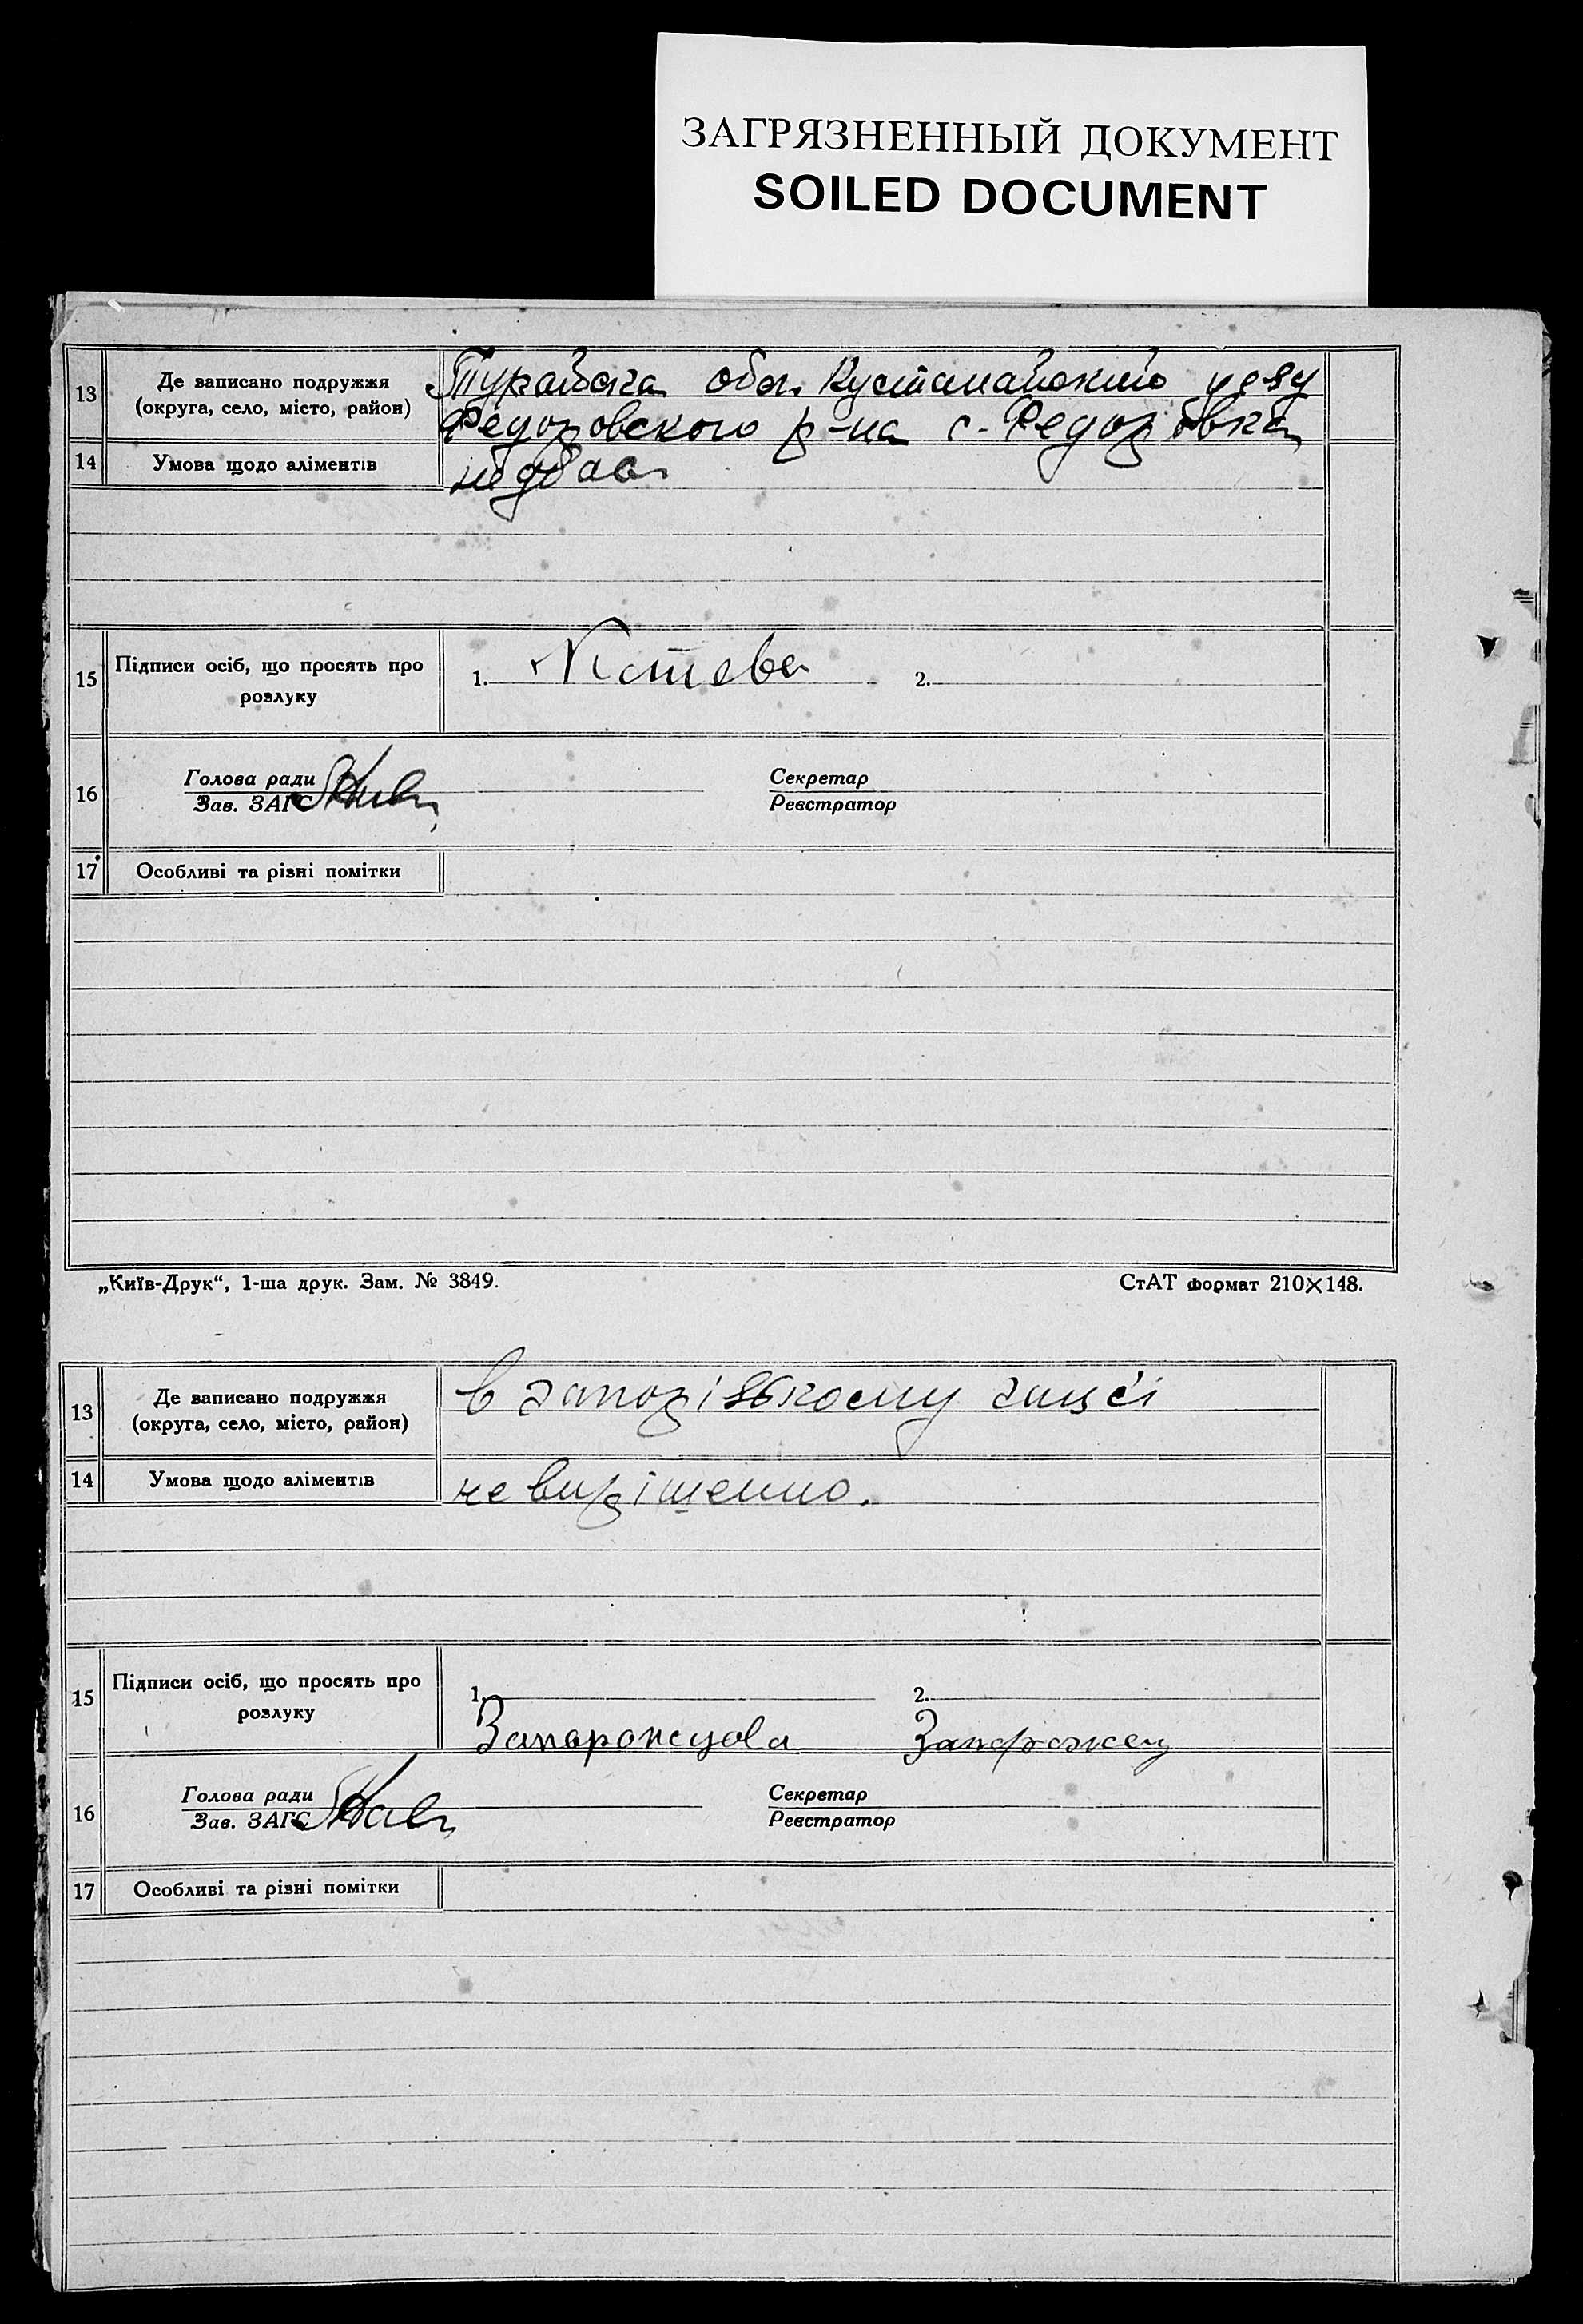 ЗАГРЯЗНЕННЫЙ ДОКУМЕНТ
SOILED DOCUMENT
13 Де записано подружжя (округа, село, місто, район)
обл. Кустанайского уезду
Федоровского р-на с. Федоровка
14 Умова щодо аліментів
15 Підписи осіб, що просять про розлуку
1. 2.
16 Голова ради Секретар
Зав. ЗАГС Реєстратор
17 Особливі та різні помітки
„Київ-Друк“, 1-ша друк. Зам. № 3849. СтАТ формат 210×148.
13 Де записано подружжя (округа, село, місто, район)
в запорізькому загсі
14 Умова щодо аліментів
не вирішенно.
15 Підписи осіб, що просять про розлуку
1. 2.
Запорожцова Запорожец
16 Голова ради Секретар
Зав. ЗАГС Реєстратор
17 Особливі та різні помітки